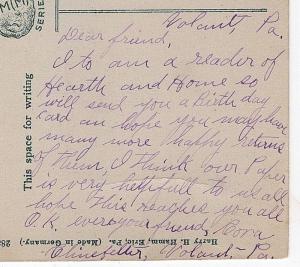 Volant, Pa.
Dear friend,
I to am a reader of
Hearth and Home so
will send you a Birth day
Card an hope you may have
many more happy returns
of them, I think our Paper
is very helpfull to us all
hope this Reaches you all
O.K. ever your friend, Cora
Volant, Pa.
This space for writing
Harry H. Hamm, Erie, Pa. (Made in Germany).
28
SERIE